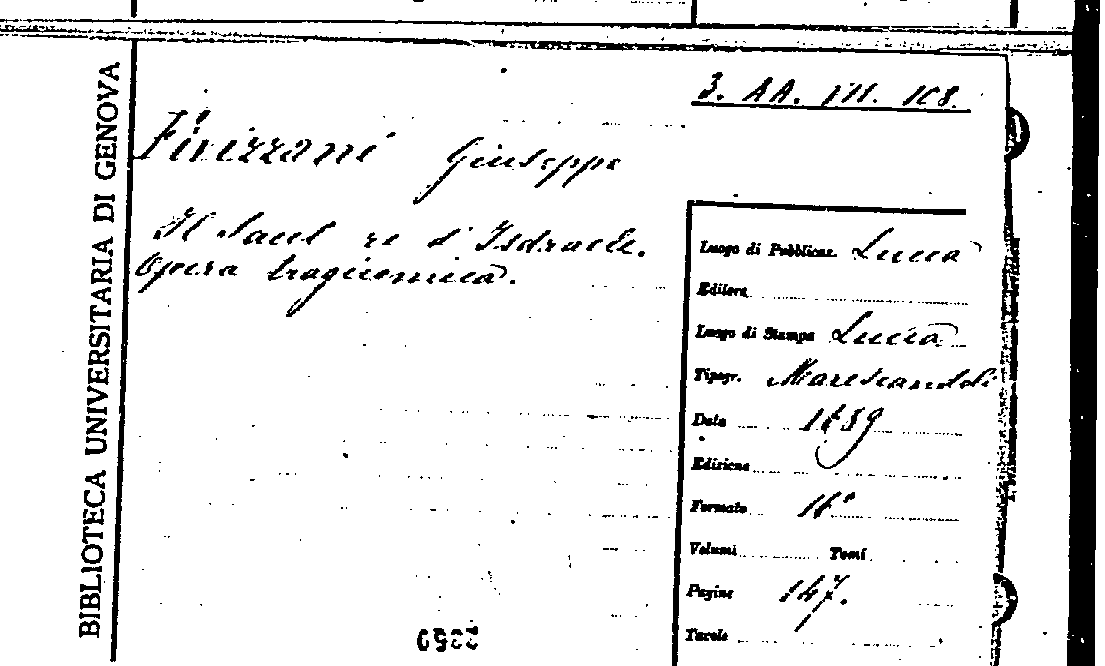 BIBLIOTECA UNIVERSITARIA DI GENOVA
3. AA. III. 108.
Fivizzani Giuseppe
Il Saul re d'Isdraele.
Opera tragicomica.
Luogo di Pubblicaz. Lucca
Editore
Luogo di Stampa Lucca
Tipogr. Marescandoli
Data 1689
Edizione
Formato 16°
Volumi Tomi
Pagine 147.
Tavole